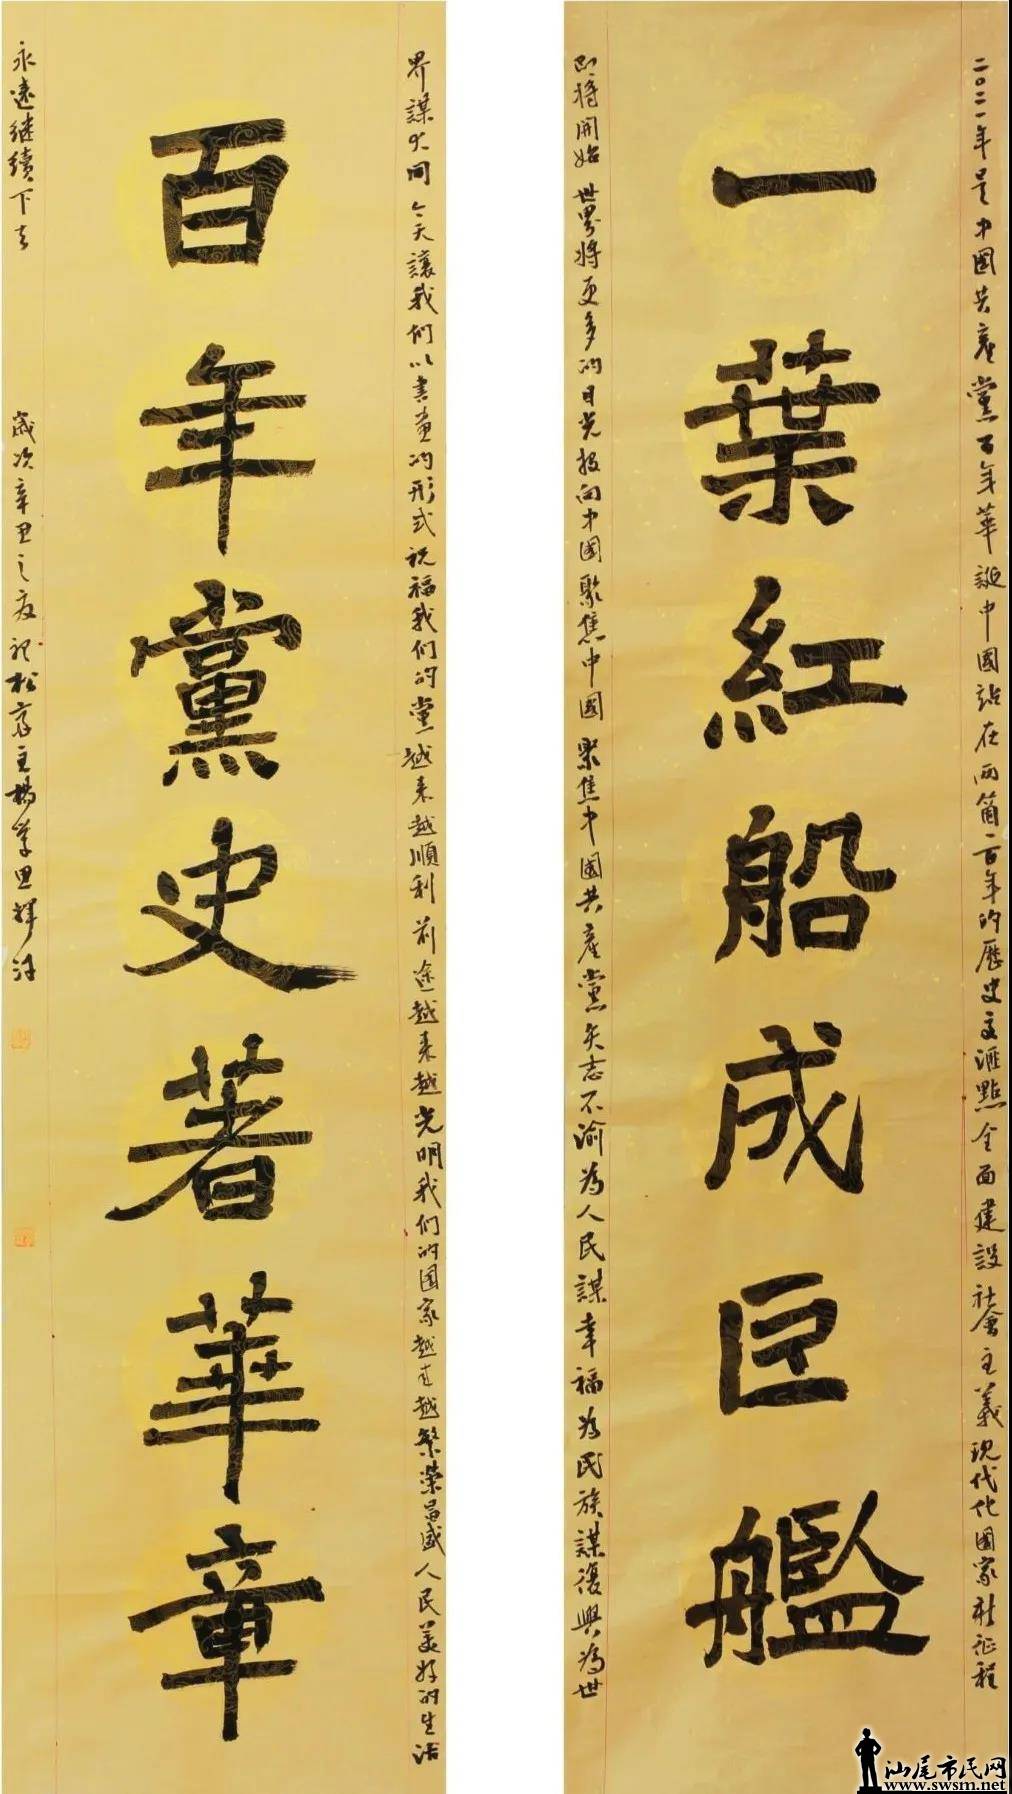 二〇二一年是中國共產黨百年華誕中國站在兩箇一百年的歷史交滙點全面建設社會主義現代化國家新征程
一葉紅船成巨艦
即將開始世界將更多的目光投向中國聚焦中國聚焦中國共產黨矢志不渝為人民謀幸福為民族謀復興為世
界謀大同今天讓我们以書畫的形式祝福我们的黨越来越順利前途越来越光明我们的国家越来越繁荣昌盛人民美好的生活
百年黨史著華章
永遠继續下去
歲次辛丑之夏 松 主楊 思輝
汕尾市民网
www.swsm.net